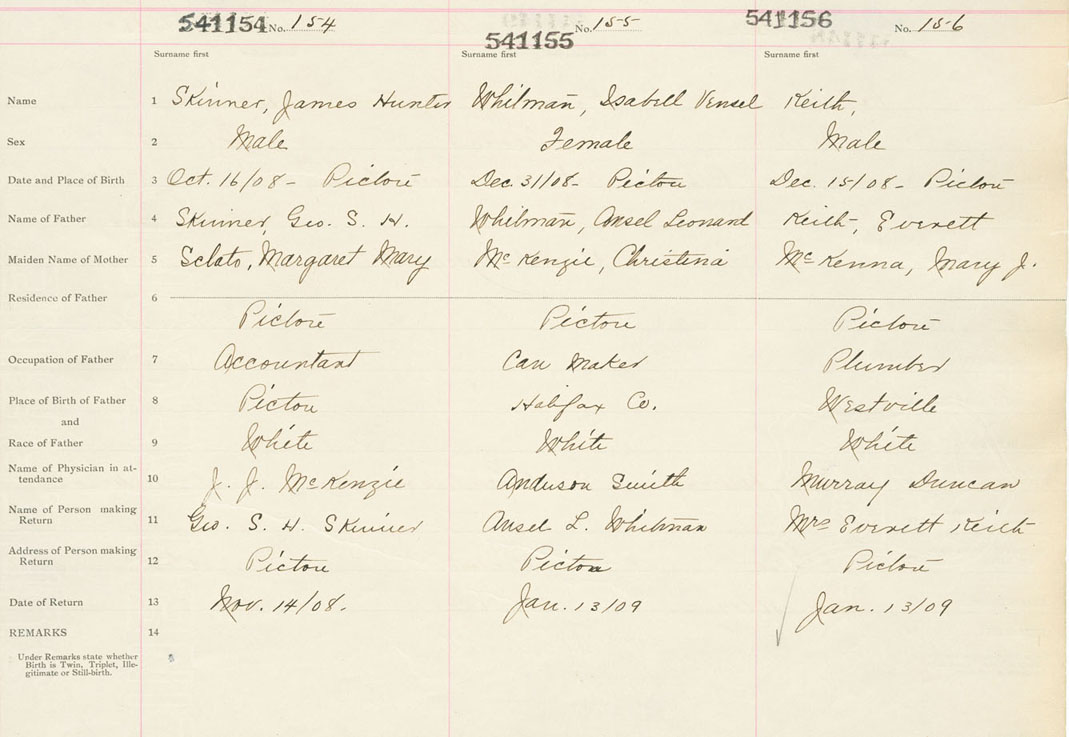 541154 No. 154 541155 No. 155 541156 No. 156
Surname first Surname first Surname first
Name 1 Skinner, James Hunter Whitman, Isabell Vensel Keith,
Sex 2 Male Female Male
Date and Place of Birth 3 Oct. 16/08- Pictou Dec. 31/08- Pictou Dec. 15/08- Pictou
Name of Father 4 Skinner, Geo. S. H. Whitman, Ansel Leonard Keith, Everett
Maiden Name of Mother 5 Sclato, Margaret Mary McKenzie, Christina McKenna, Mary J.
Residence of Father 6
Pictou Pictou Pictou
Occupation of Father 7 Accountant Can Maker Plumber
Place of Birth of Father 8 Pictou Halifax Co. Westville
and
Race of Father 9 White White White
Name of Physician in at-
tendance 10 J. J. McKenzie Anderson Smith Murray Duncan
Name of Person making
Return 11 Geo. S. H. Skinner Ansel L. Whitman Mrs Everett Keith
Address of Person making
Return 12 Pictou Pictou Pictou
Date of Return 13 Nov. 14/08. Jan. 13/09 Jan. 13/09
REMARKS 14
Under Remarks state whether
Birth is Twin, Triplet, Ille-
gitimate or Still-birth.